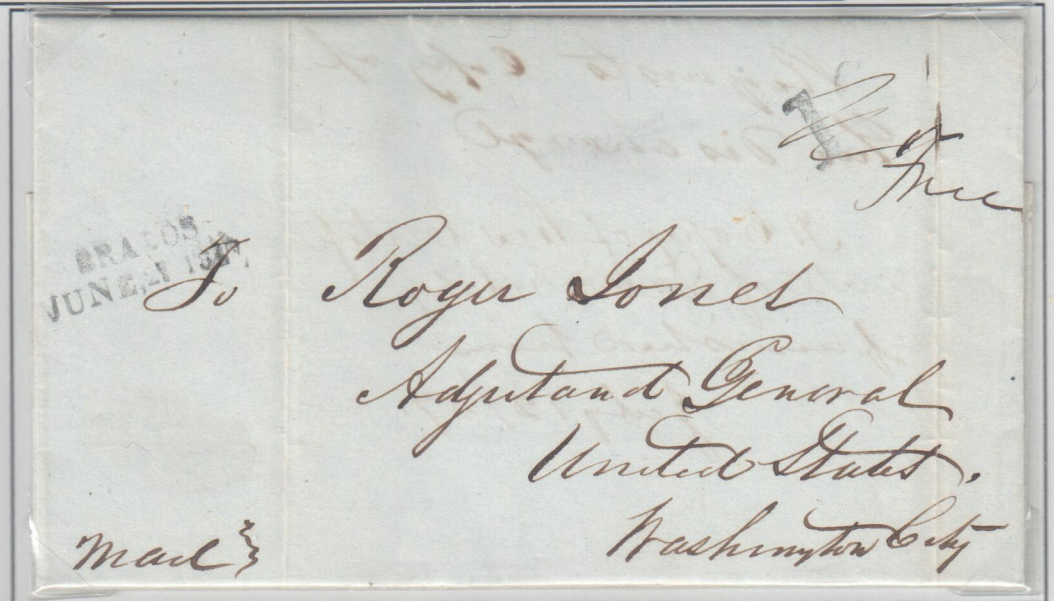 Free
BRAZOS.
JUNE, 21
To Roger Jones
Adjutand General
United States.
Washington City
Mail